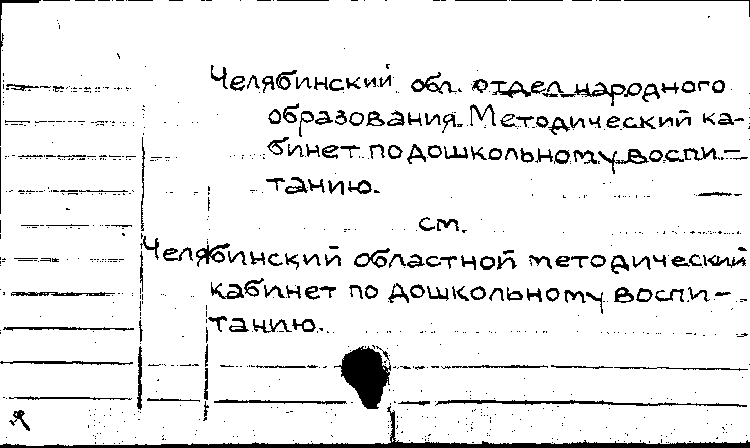 Челябинский обл. отдел народного
образования. Методический ка-
бинет по дошкольному воспи-
танию.
см.
Челябинский областной методический
кабинет по дошкольному воспи-
танию.